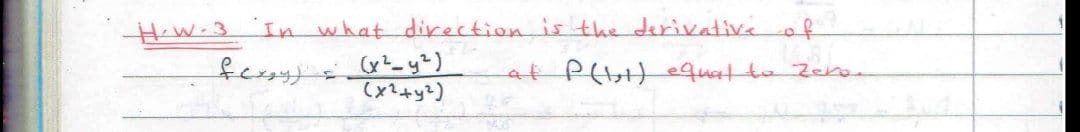 H.W.3 In what direction is the derivative of
f(x,y) = (x²-y²)/(x²+y²) at P(1,1) equal to zero.